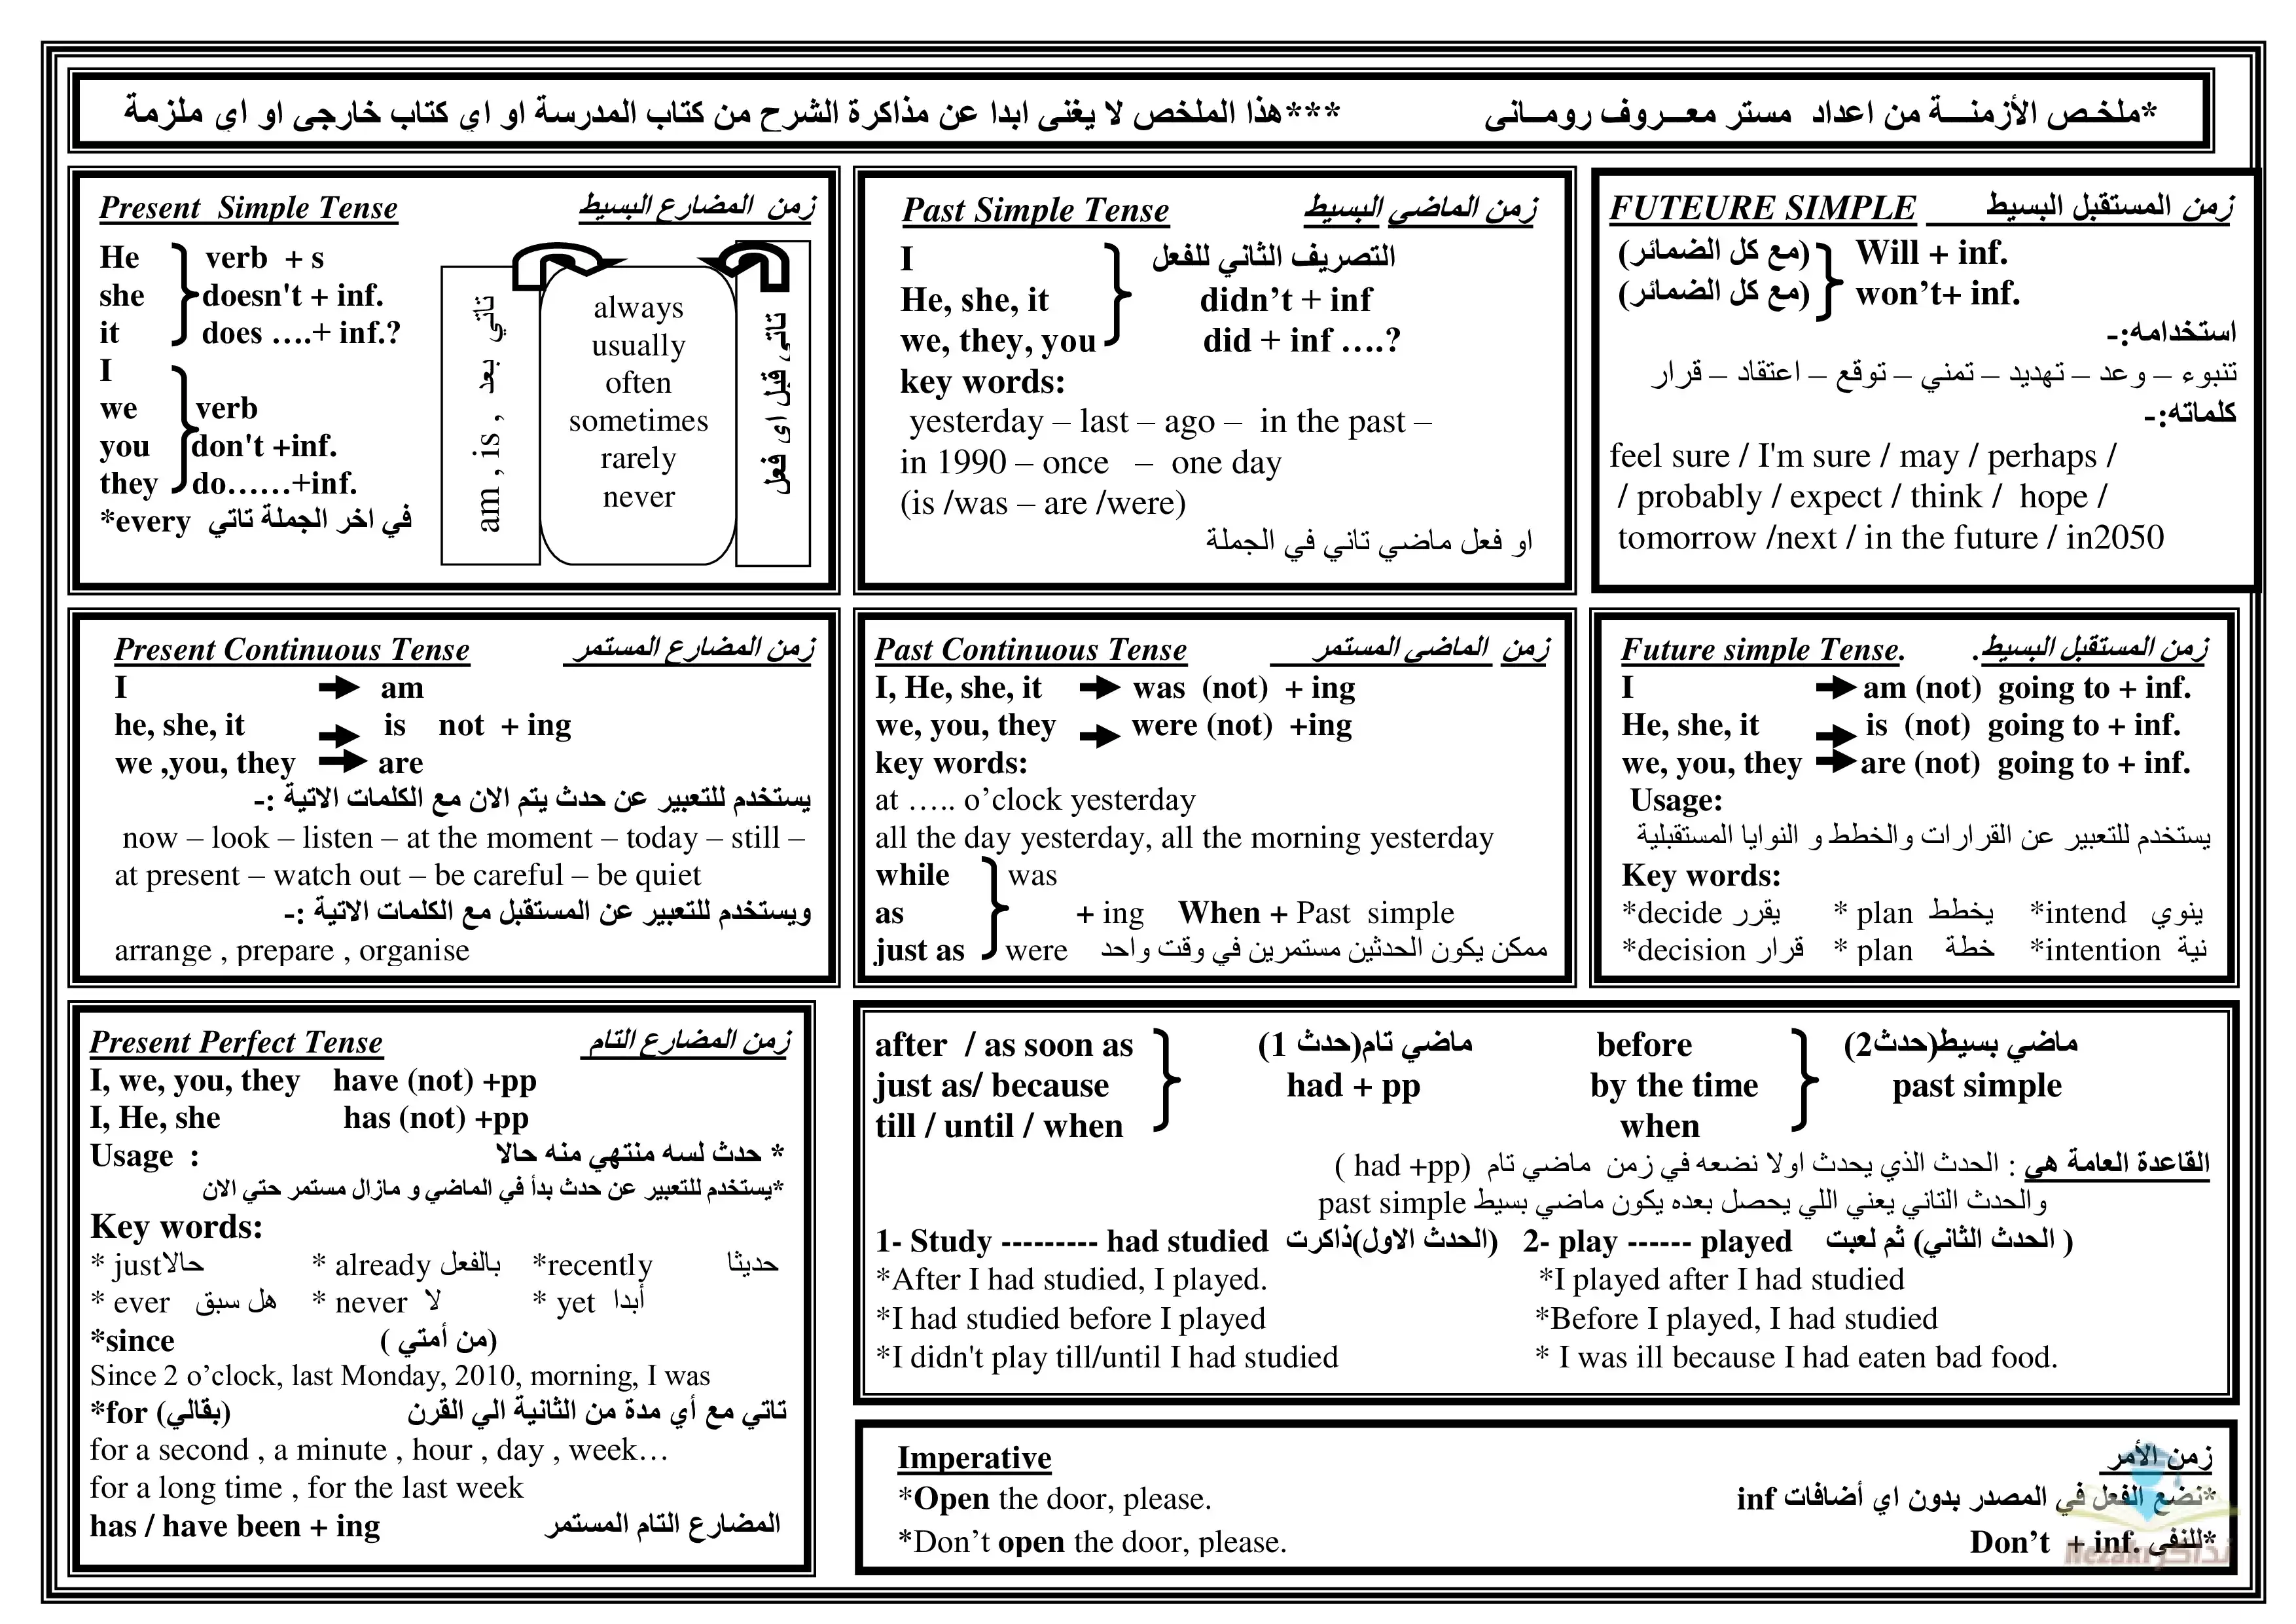 *ملخـص الأزمنـــة من اعداد مستر معـــروف رومـــانى ***هذا الملخص لا يغنى ابدا عن مذاكرة الشرح من كتاب المدرسة او اي كتاب خارجى او اي ملزمة
Present Simple Tense زمن المضارع البسيط
He verb + s
she doesn't + inf.
it does ….+ inf.?
I
we verb
you don't +inf.
they do……+inf.
*every في اخر الجملة تاتي
تاتي بعد am , is ,
always
usually
often
sometimes
rarely
never
تاتى قبل اى فعل
Past Simple Tense زمن الماضي البسيط
I التصريف الثاني للفعل
He, she, it didn’t + inf
we, they, you did + inf ….?
key words:
yesterday – last – ago – in the past –
in 1990 – once – one day
(is /was – are /were)
او فعل ماضي تاني في الجملة
FUTEURE SIMPLE زمن المستقبل البسيط
(مع كل الضمائر) Will + inf.
(مع كل الضمائر) won’t+ inf.
استخدامه:-
تنبوء – وعد – تهديد – تمني – توقع – اعتقاد – قرار
كلماته:-
feel sure / I'm sure / may / perhaps /
/ probably / expect / think / hope /
tomorrow /next / in the future / in2050
Present Continuous Tense زمن المضارع المستمر
I am
he, she, it is not + ing
we ,you, they are
يستخدم للتعبير عن حدث يتم الان مع الكلمات الاتية :-
now – look – listen – at the moment – today – still –
at present – watch out – be careful – be quiet
ويستخدم للتعبير عن المستقبل مع الكلمات الاتية :-
arrange , prepare , organise
Past Continuous Tense زمن الماضى المستمر
I, He, she, it was (not) + ing
we, you, they were (not) +ing
key words:
at ….. o’clock yesterday
all the day yesterday, all the morning yesterday
while was
as + ing When + Past simple
just as were ممكن يكون الحدثين مستمرين في وقت واحد
Future simple Tense. زمن المستقبل البسيط.
I am (not) going to + inf.
He, she, it is (not) going to + inf.
we, you, they are (not) going to + inf.
Usage:
يستخدم للتعبير عن القرارات والخطط و النوايا المستقبلية
Key words:
*decide يقرر * plan يخطط *intend ينوي
*decision قرار * plan خطة *intention نية
Present Perfect Tense زمن المضارع التام
I, we, you, they have (not) +pp
I, He, she has (not) +pp
Usage : * حدث لسه منتهي منه حالا
*يستخدم للتعبير عن حدث بدأ في الماضي و مازال مستمر حتي الان
Key words:
* just حالا * already بالفعل *recently حديثا
* ever هل سبق * never لا * yet أبدا
*since (من أمتي )
Since 2 o’clock, last Monday, 2010, morning, I was
*for (بقالي) تاتي مع أي مدة من الثانية الي القرن
for a second , a minute , hour , day , week…
for a long time , for the last week
has / have been + ing المضارع التام المستمر
after / as soon as ماضي تام(حدث 1) before ماضي بسيط(حدث2)
just as/ because had + pp by the time past simple
till / until / when when
القاعدة العامة هي : الحدث الذي يحدث اولا نضعه في زمن ماضي تام (had +pp )
والحدث التاني يعني اللي يحصل بعده يكون ماضي بسيط past simple
1- Study --------- had studied ذاكرت(الحدث الاول) 2- play ------ played ثم لعبت (الحدث الثاني )
*After I had studied, I played. *I played after I had studied
*I had studied before I played *Before I played, I had studied
*I didn't play till/until I had studied * I was ill because I had eaten bad food.
Imperative زمن الأمر
*Open the door, please. *نضع الفعل في المصدر بدون اي أضافات inf
*Don’t open the door, please. *للنفى Don’t + inf.